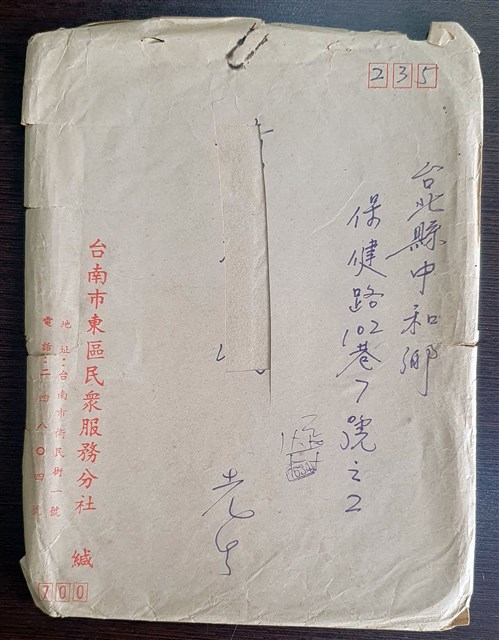 235
台北縣中和鄉
保健路102巷7號之2
先生
台南市東區民衆服務分社 緘
地址：台南市衛民街一號
電話：二四八〇四號
700